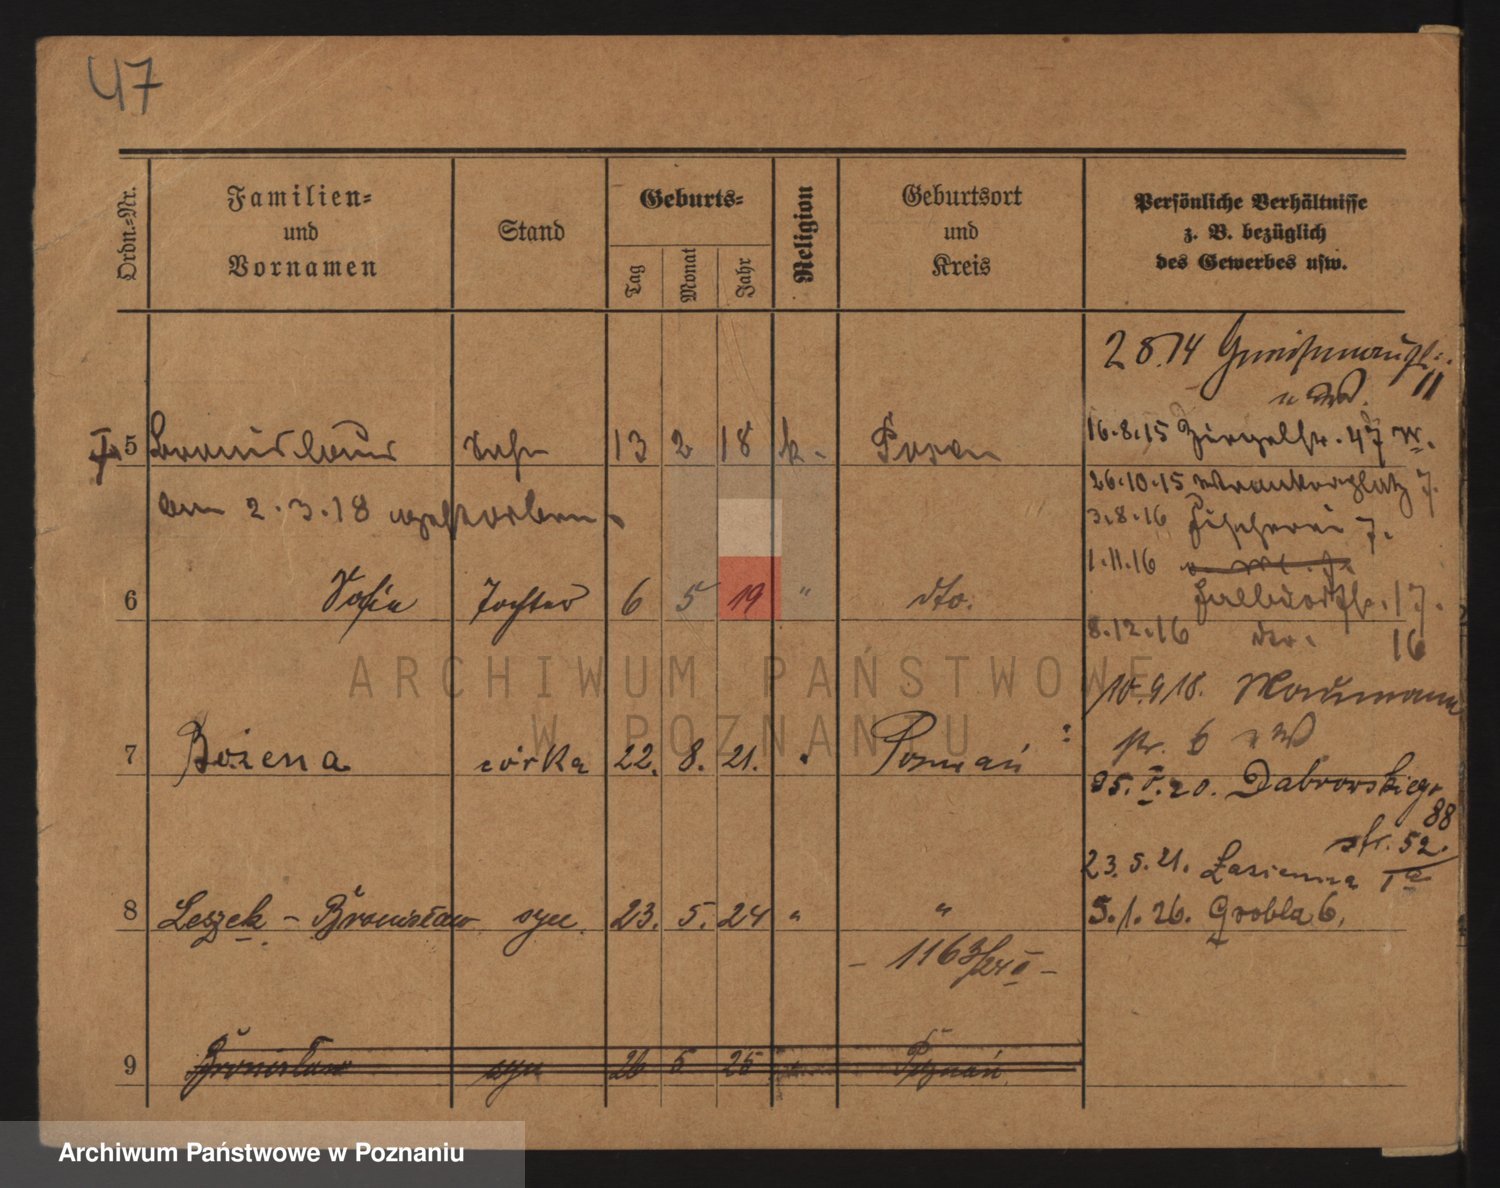 47
Ordn.-Nr.
Familien-
und
Vornamen
Stand
Geburts-
Tag
Monat
Jahr
Religion
Geburtsort
und
Kreis
Persönliche Verhältnisse
z. B. bezüglich
des Gewerbes usw.
2 8.14 Gneisenaustr.
11
5 Bronislaus Sohn 13 2 18 k. Posen
am 2.3.18 gestorben.
6 Sofie Tochter 6 5 19 " dto.
7 Bożena córka 22. 8. 21. Poznań
8 Leszek - Bronisław syn 23. 5. 24 " "
- 1163/24 II -
9 Bronisław syn 26 5 25 Poznań
16.8.15 Ziegelstr. 47 W.
26.10.15 7.
3.8.16 Fischerei 7.
1.11.16
Halbdorfstr. 17.
8.12.16 16
10.9.18.
str. 6
25.V.20. Dabrowskiego
88
str. 52.
23.5.21. Łazienna 1a
5.1.26. Grobla 6.
ARCHIWUM PAŃSTWOWE
W POZNANIU
Archiwum Państwowe w Poznaniu